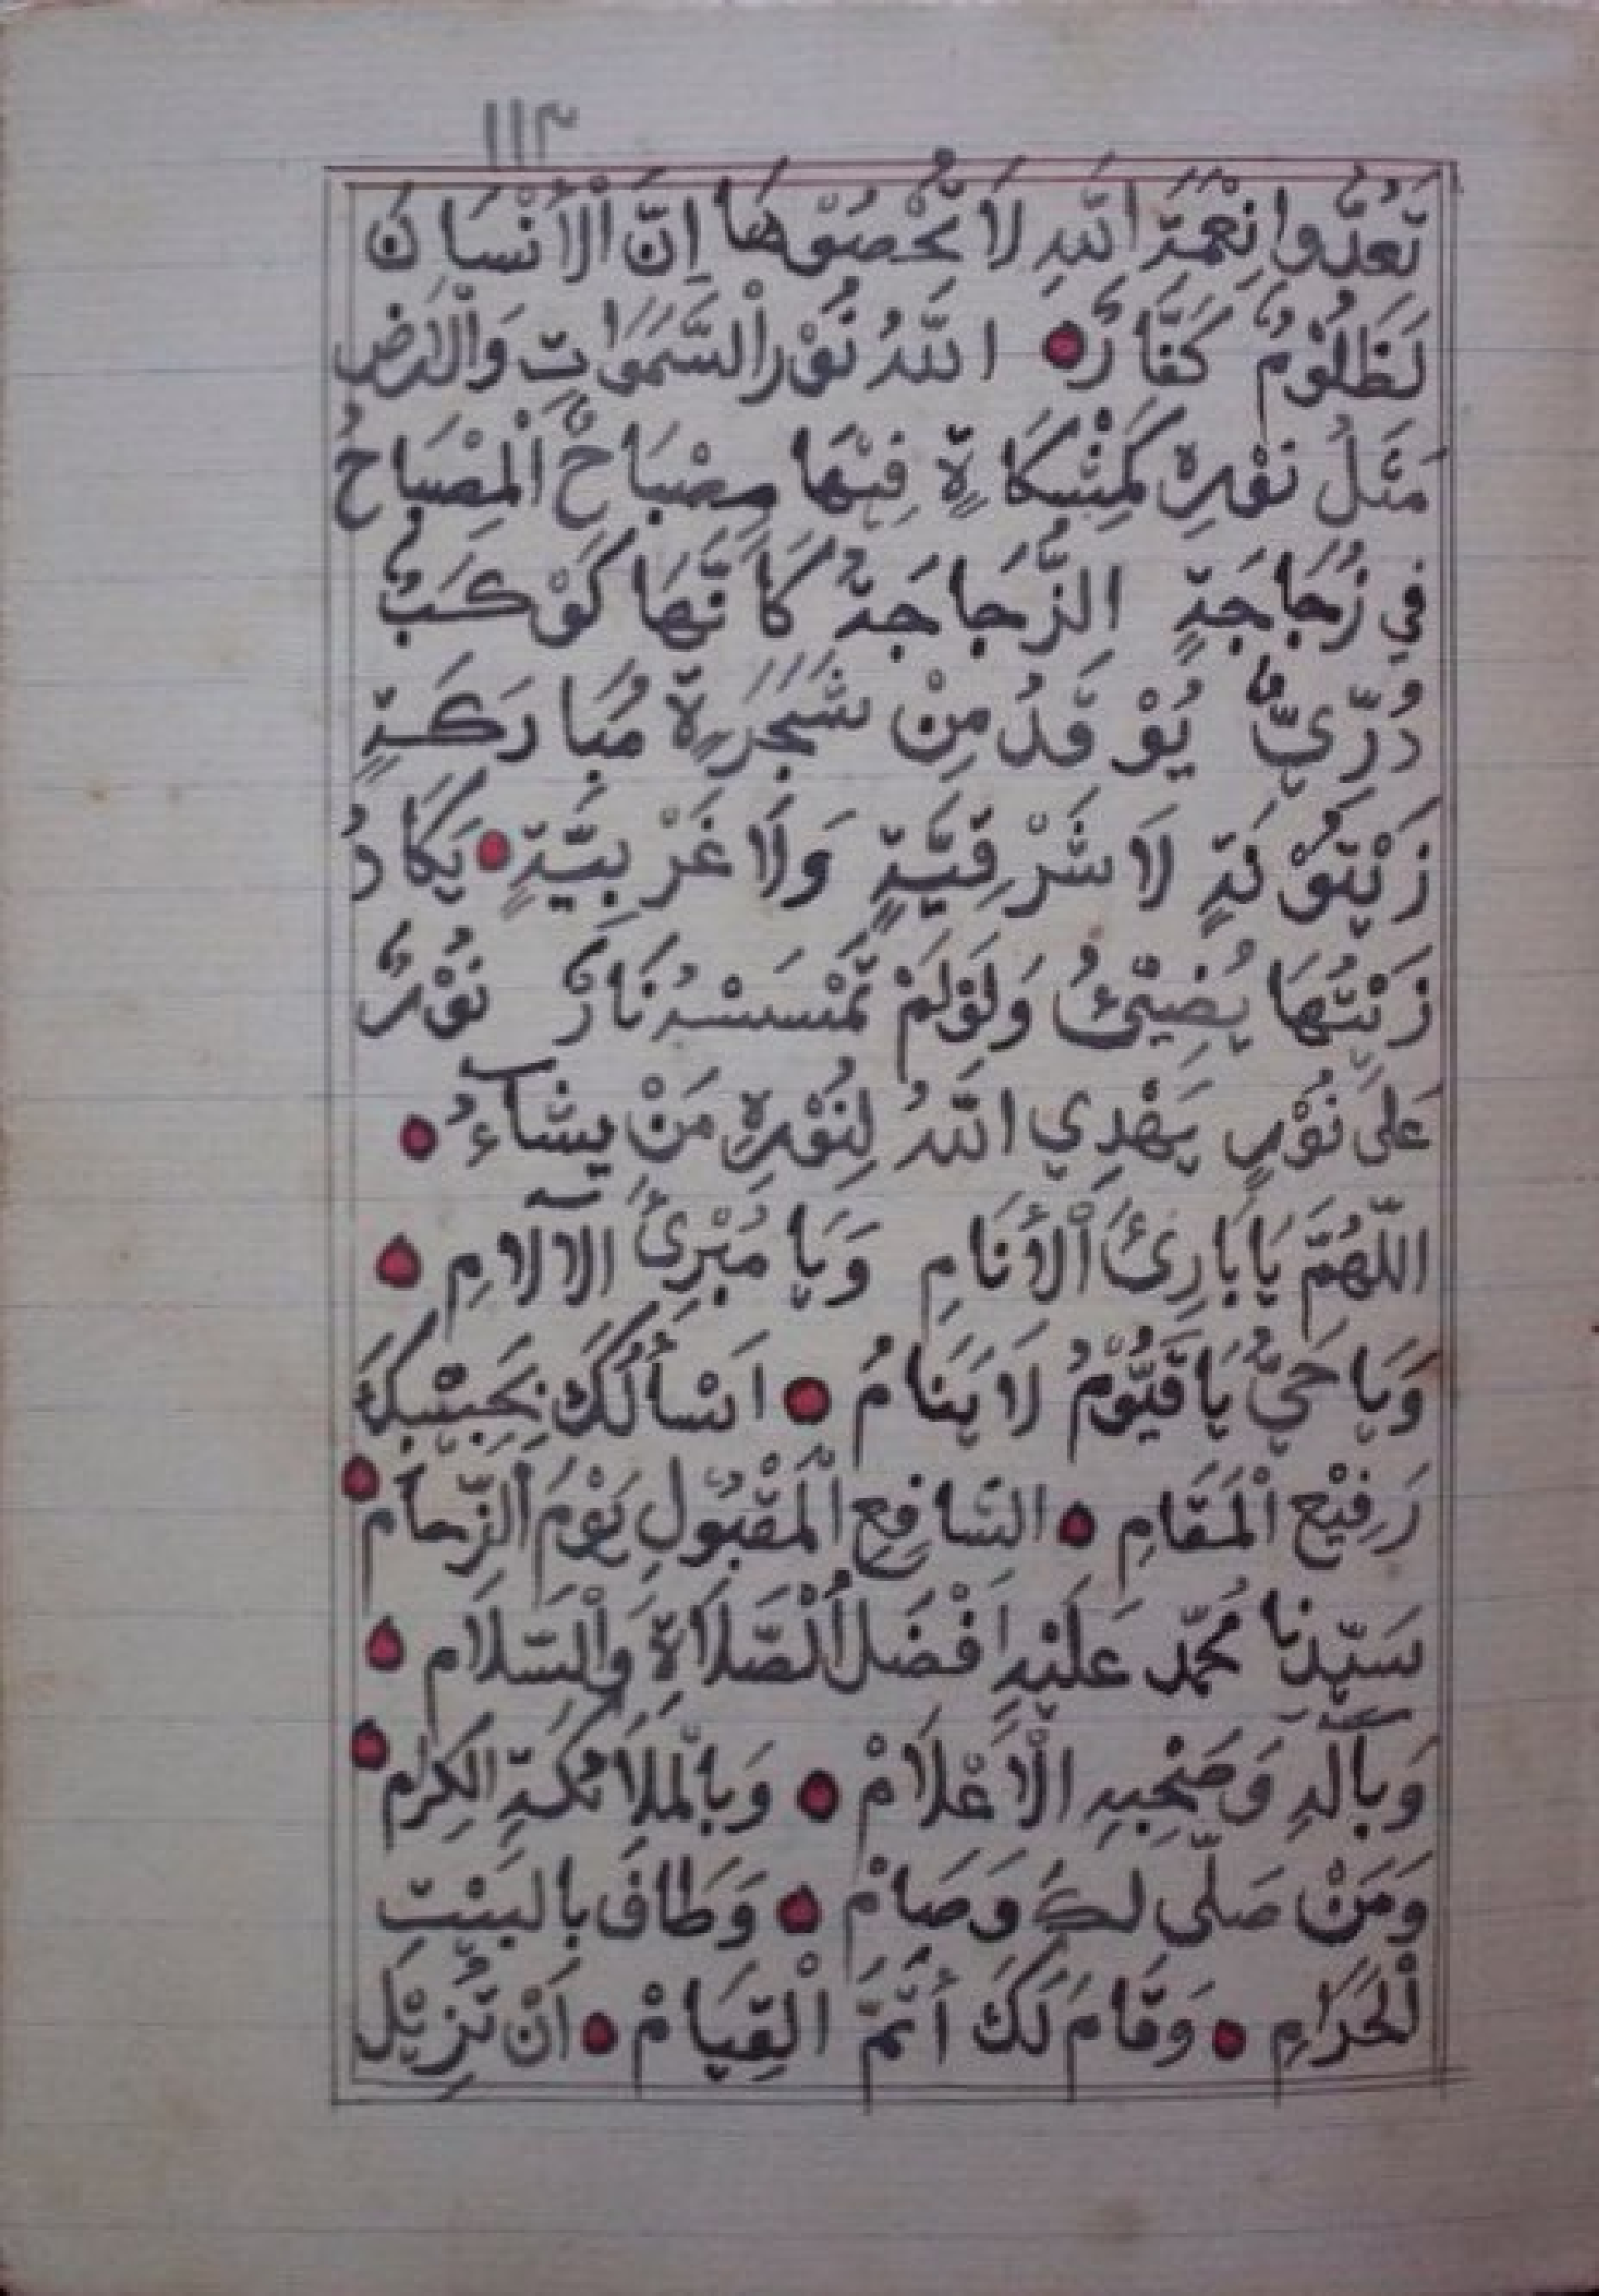 ١١٣
تَعُدُّوا نِعْمَةَ اللّٰهِ لَا تُحْصُوْهَا اِنَّ الْاِنْسَانَ
لَظَلُوْمٌ كَفَّارٌ ۝ اللّٰهُ نُوْرُ السَّمٰوَاتِ وَالْاَرْضِ
مَثَلُ نُوْرِهٖ كَمِشْكَاةٍ فِيْهَا مِصْبَاحٌ اَلْمِصْبَاحُ
فِي زُجَاجَةٍ الزُّجَاجَةُ كَاَنَّهَا كَوْكَبٌ
دُرِّيٌّ يُوْقَدُ مِنْ شَجَرَةٍ مُبَارَكَةٍ
زَيْتُوْنَةٍ لَا شَرْقِيَّةٍ وَلَا غَرْبِيَّةٍ ۝ يَكَادُ
زَيْتُهَا يُضِيْئُ وَلَوْ لَمْ تَمْسَسْهُ نَارٌ نُوْرٌ
عَلَى نُوْرٍ يَهْدِي اللّٰهُ لِنُوْرِهِ مَنْ يَشَاءُ ۝
اللّٰهُمَّ يَا بَارِئَ الْأَنَامِ وَيَا مُبْرِئَ الآلامِ ۝
وَيَا حَيُّ يَا قَيُّوْمُ لَا يَنَامُ ۝ اَسْأَلُكَ بِحَبِيْبِكَ
رَفِيْعِ الْمَقَامِ ۝ الشَّافِعِ الْمَقْبُوْلِ يَوْمَ الزِّحَامِ ۝
سَيِّدِنَا مُحَمَّد عَلَيْهِ اَفْضَلُ الْصَّلَاةِ وَالْسَّلَام ۝
وَبِآلِهِ وَصَحْبِهِ الْاَعْلَامْ ۝ وَبِالْمَلَائكَةِ الكِرٰم ۝
وَمَنْ صَلّٰى لَكَ وَصَامْ ۝ وَطَافَ بِالبَيْتِ
لْحَرَامِ ۝ وَقَامَ لَكَ أَتَمَّ الْقِيَامْ ۝ اَنْ تُزِيْلَ